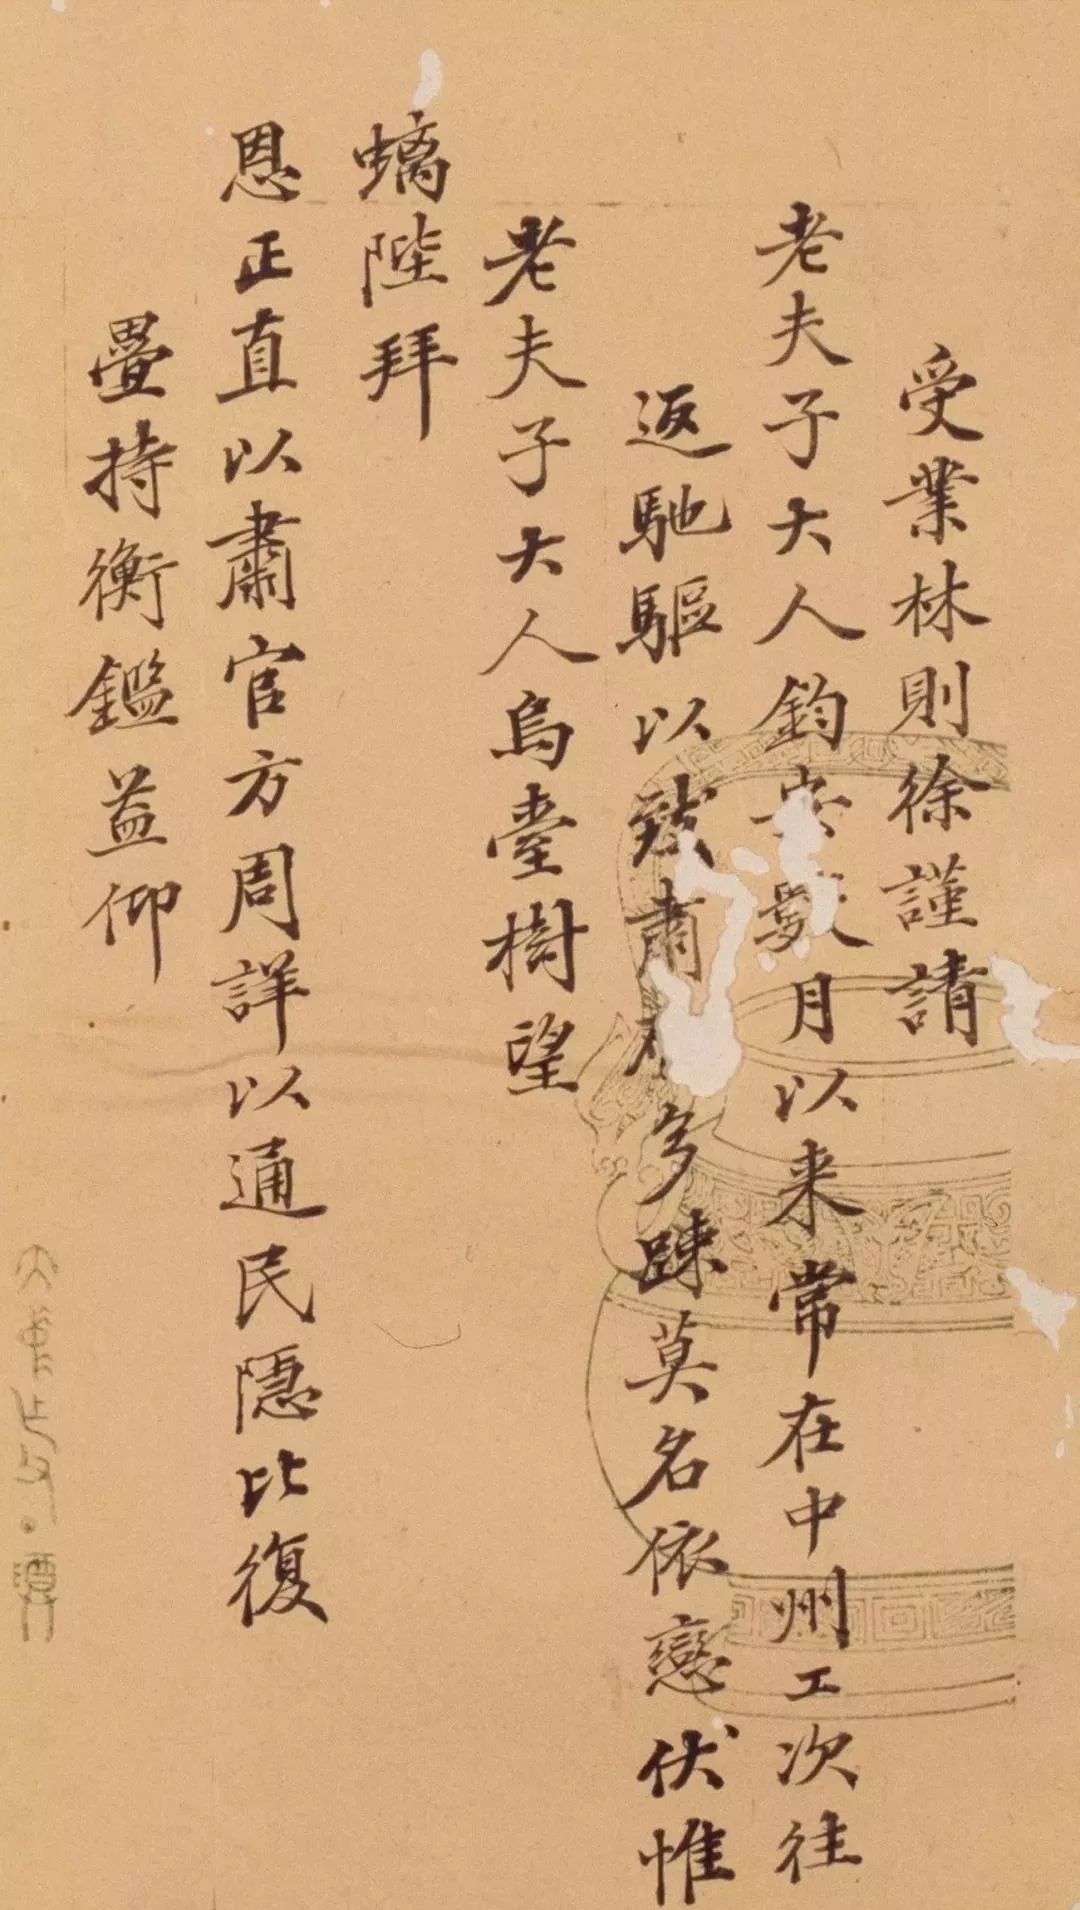 受業林則徐謹請
老夫子大人鈞安數月以来常在中州工次往
返馳驅以致肅多踈莫名依戀伏惟
老夫子大人烏臺樹望
螭陛拜
恩正直以肅官方周詳以通民隱比復
疊持衡鑑益仰